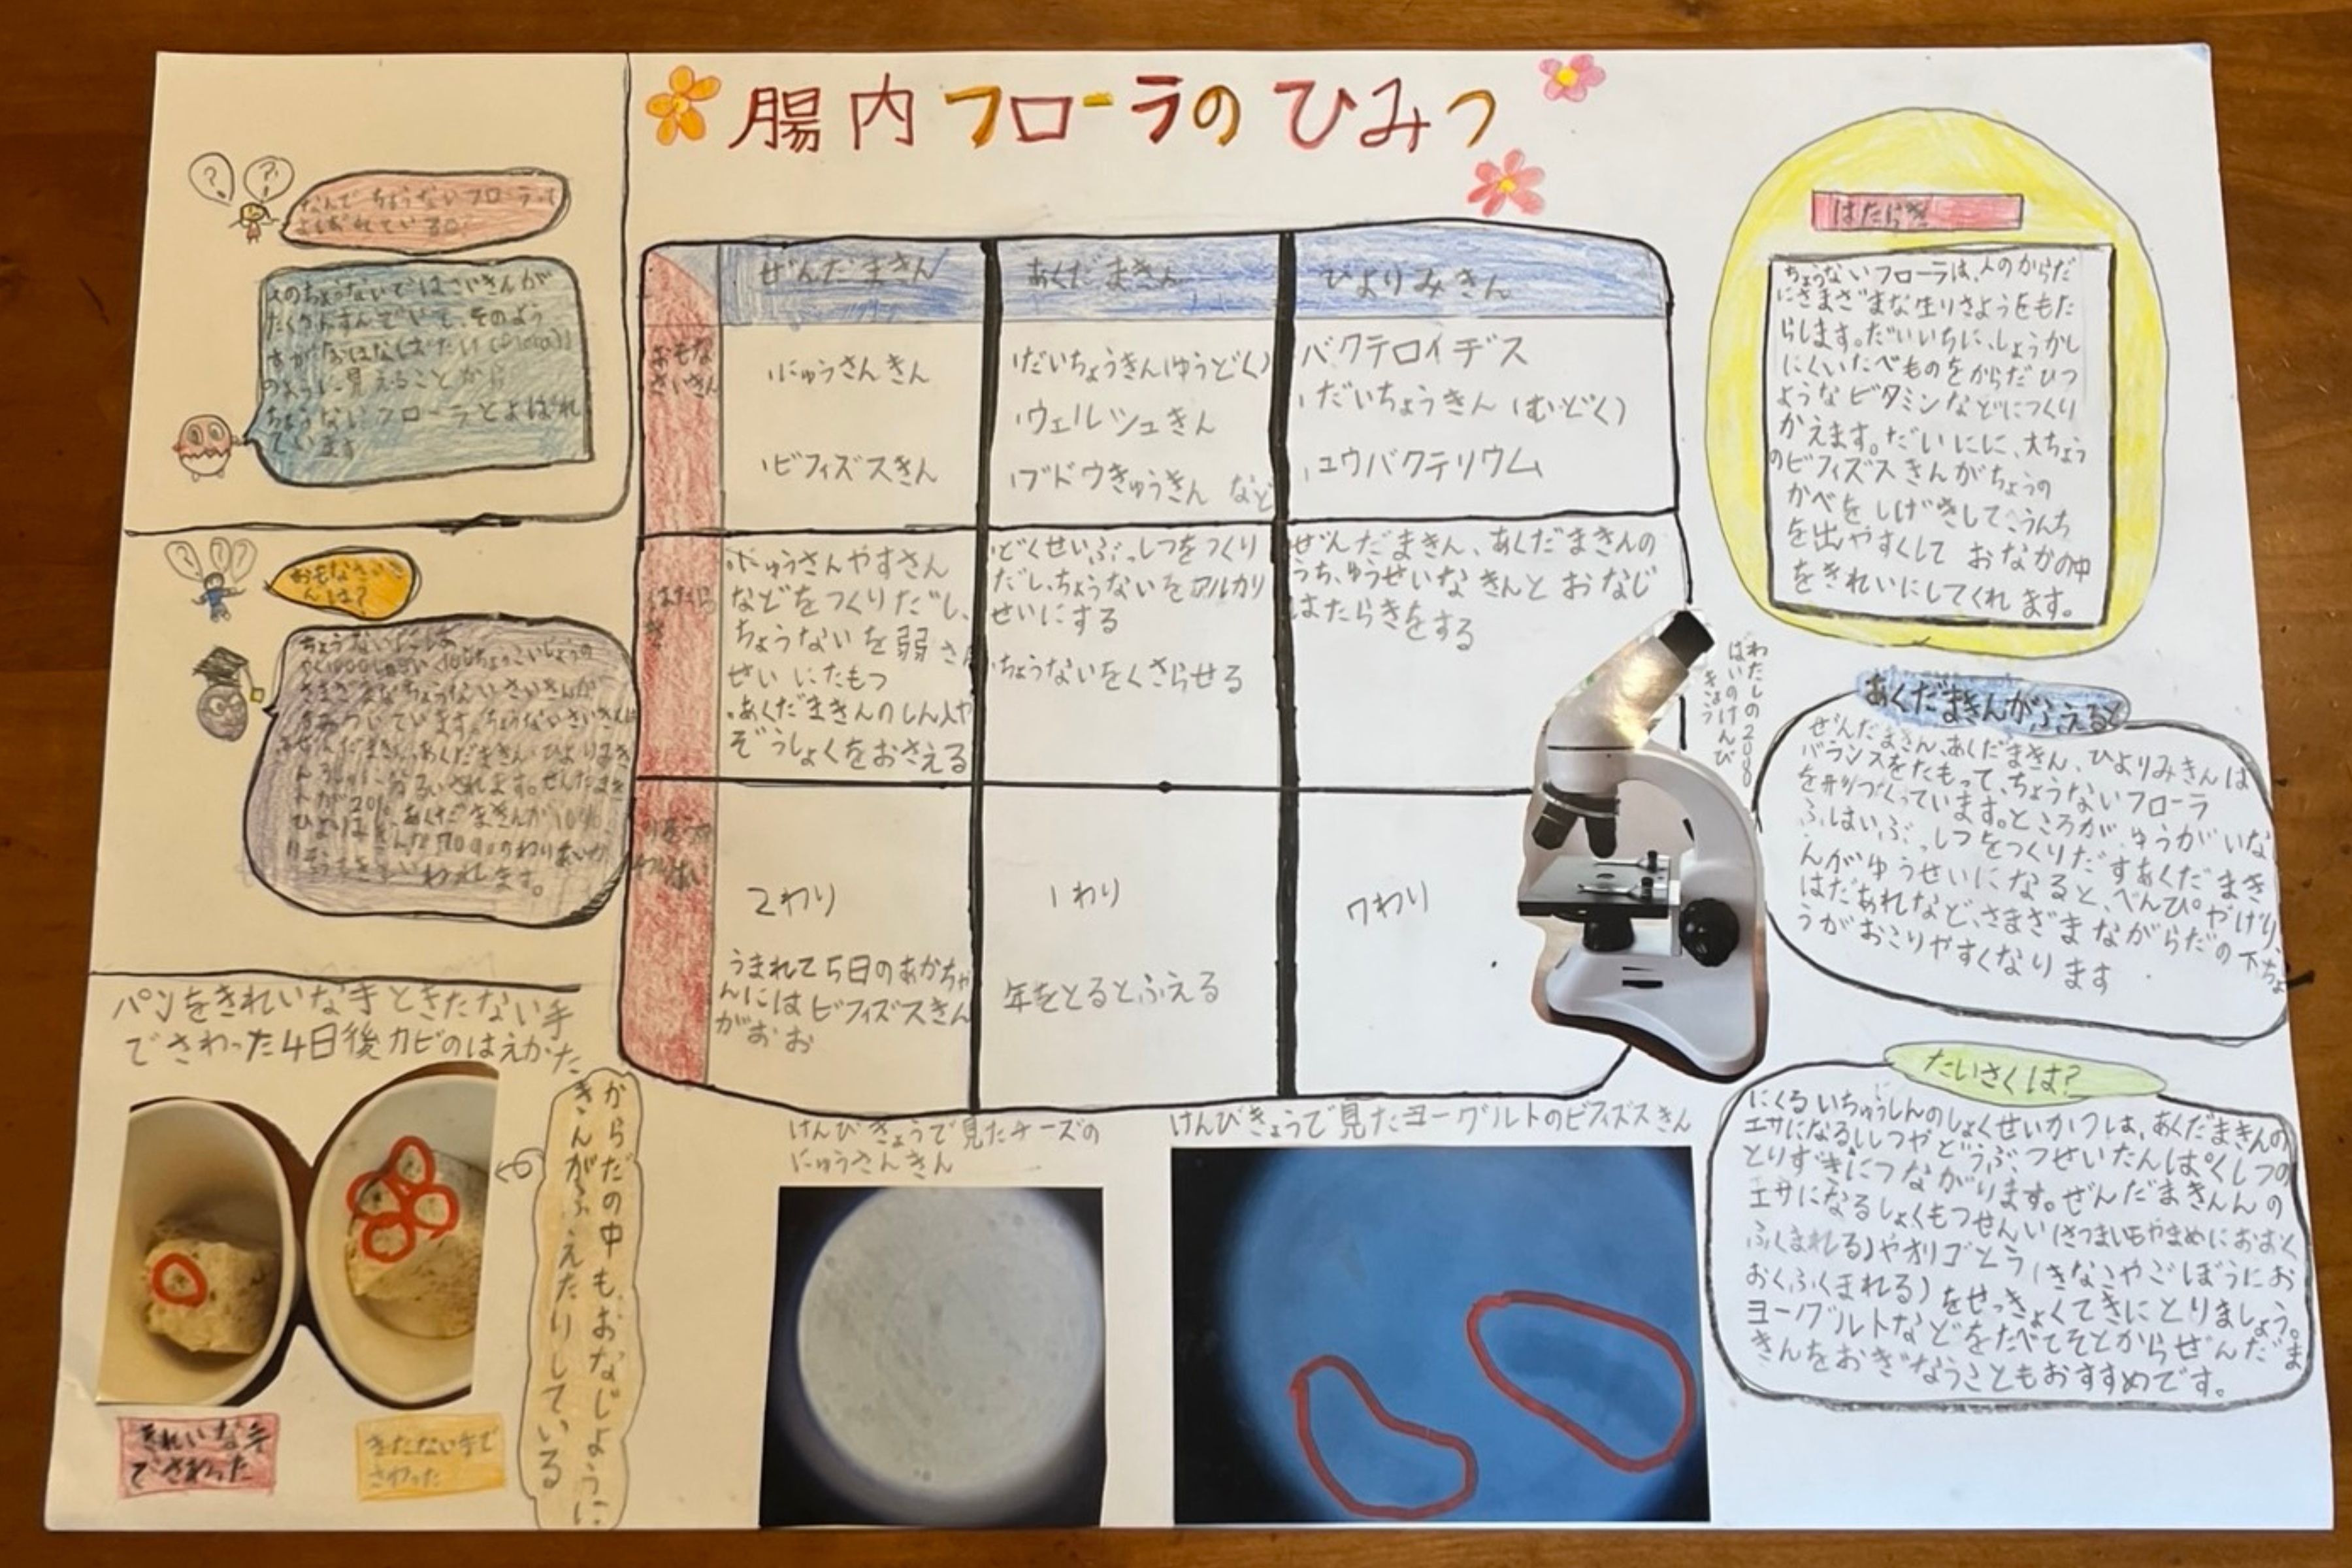 腸内フローラのひみつ
なんでちょうないフローラって
よばれているの?
人のちょうないではさいきんが
たくさんすんでいて、そのよう
すがおはなばたい(Flora)
のように見えることから
ちょうないフローラとよばれ
ています
おもなさいき
んは?
ちょうないには
さまざまなちょうないさいきんが
すみついています。ちょうないさいきんは
ぜんだまきん、あくだまきん、ひよりみき
るいされます。ぜんだまき
んが20%、あくだまきんが10%
わりあいが
りそうてきといわれます。
ぜんだまきん
あくだまきん
ひよりみきん
おもな
さいきん
にゅうさんきん
ビフィズスきん
だいちょうきん(ゆうどく)
ウェルシュきん
ブドウきゅうきん など
バクテロイデス
だいちょうきん(むどく)
ユウバクテリウム
はたら
き
にゅうさんやすさん
などをつくりだし、
ちょうないを弱さん
せいにたもつ
あくだまきんのしん入や
ぞうしょくをおさえる
どくせいぶっしつをつくり
だし、ちょうないをアルカリ
せいにする
ちょうないをくさらせる
ぜんだまきん、あくだまきんの
うち、ゆうせいなきんとおなじ
はたらきをする
わりあい
2わり
うまれて5日のあかちゃ
んにはビフィズスきん
がおお
1わり
年をとるとふえる
7わり
はたらき
ちょうないフローラは、人のからだ
にさまざまな生りさようをもた
らします。だいいちに、しょうかし
にくいたべものをからだひつ
ような ビタミンなどにつくり
かえます。だいにに、大ちょう
のビフィズスきんがちょうの
かべをしげきして、うんち
を出やすくして おなかの中
をきれいにしてくれ ます。
わたしの2000
ばいのけんび
きょう
あくだまきんがふえると
ぜんだまきん、あくだまきん、ひよりみきんは
バランスをたもって、ちょうないフローラ
を形づくっています。ところが、ゆうがいな
ふはいぶっしつをつくりだすあくだまき
んがゆうせいになると、べんぴやげり、
はだあれなど、さまざまながらだの下ちょ
うがおこりやすくなります
たいさくは?
にくるいちゅうしんのしょくせいかつは、あくだまきんの
エサになるししつやどうぶつせいたんぱくしつの
とりすぎにつながります。ぜんだまきんんの
エサになるしょくもつせんい(さつまいもやまめにおおく
ふくまれる)やオリゴとう(きなこやごぼうにお
おくふくまれる)をせっきょくてきにとりましょう。
ヨーグルトなどをたべてそとからぜんだま
きんをおぎなうこともおすすめです。
パンをきれいな手ときたない手
でさわった4日後カビのはえかた
きれいな手
でさわった
きたない手で
さわった
からだの中もおなじように
きんがふえたりしている
けんびきょうで見たチーズの
にゅうさんきん
けんびきょうで見たヨーグルトのビフィズスきん